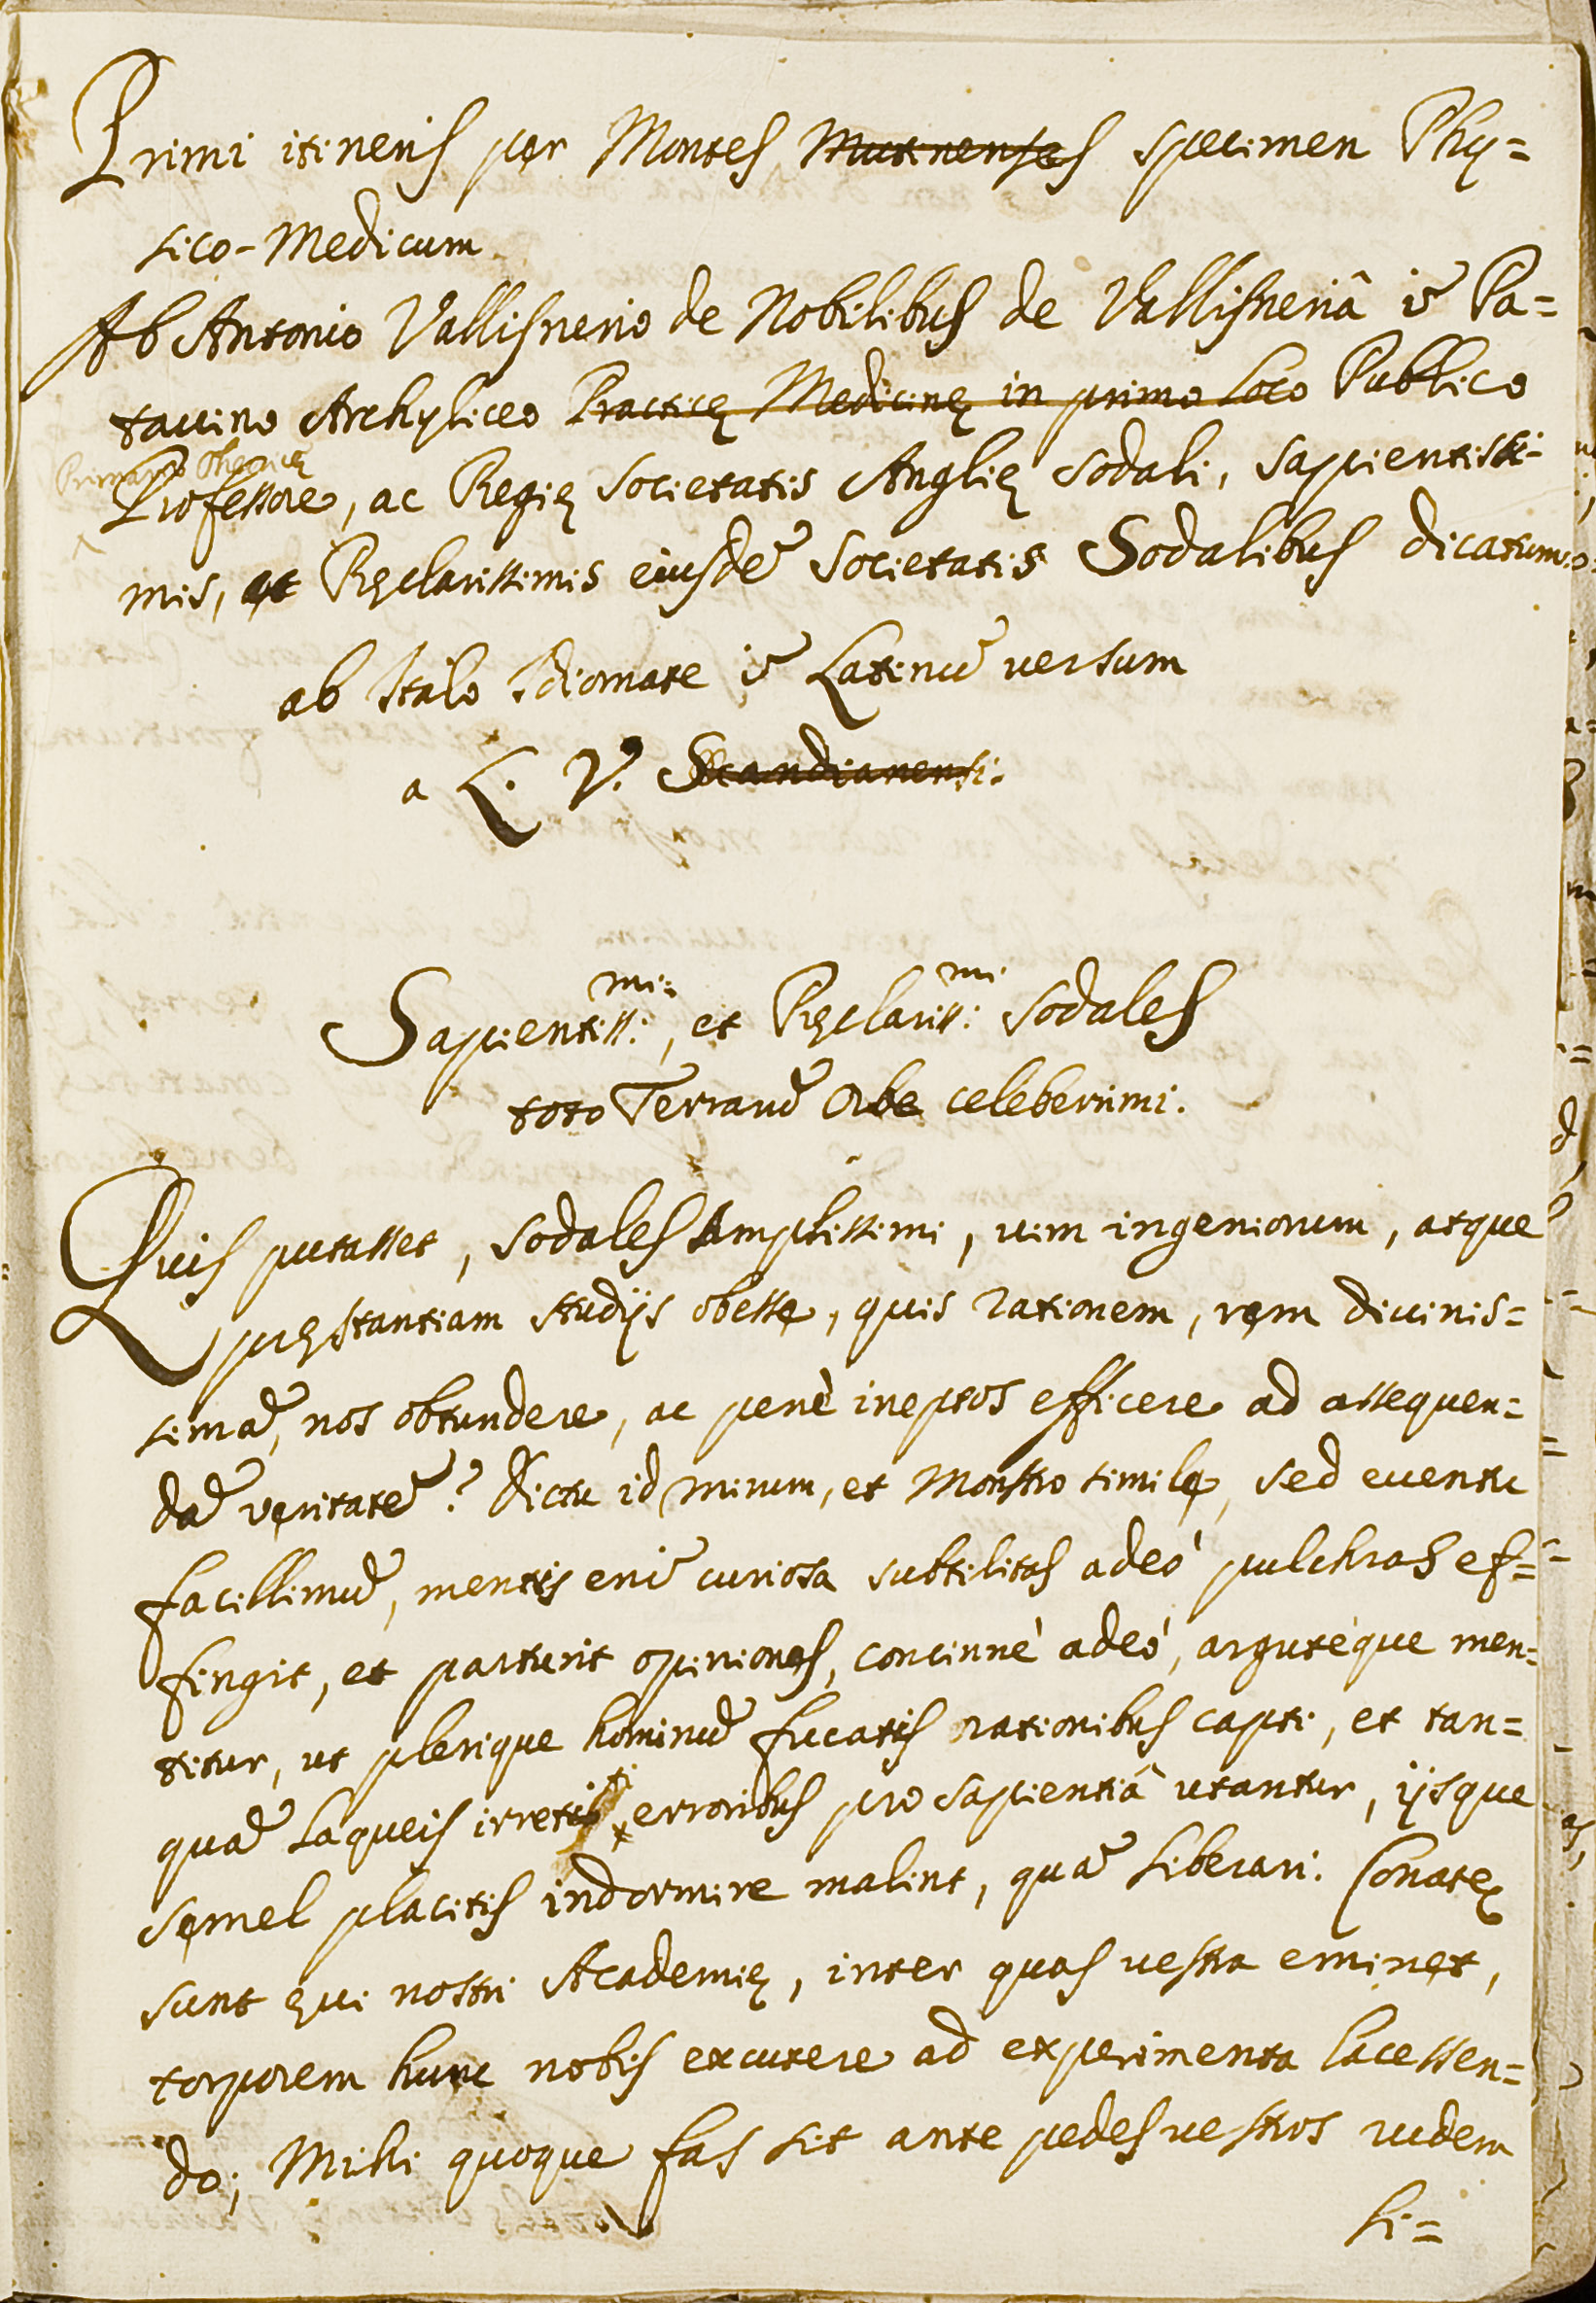 Primi itineris per Montes Mutinenses specimen Phy=
sico-Medicum
Ab Antonio Vallisnerio de Nobilibus de Vallisneriâ ĩ Pa=
tauino Archyliceo Practicę Medicinę in primo loco Publico
Primario Theoricę
Professore, ac Regię Societatis Anglię Sodali, Sapientissi-
mis, et Pręclarissimis eiusdẽ Societatis Sodalibus dicatum
ab Italo Idiomate ĩ Latinũ versum
a L. V. Scandianensi.
Sapientiss:mi:, et Pręclariss:mi Sodales
toto Terrarũ Orbe celeberrimi.
Quis putasset, Sodales Amplissimi, uim ingeniorum, atque
pręstantiam studijs obesse, quis rationem, rem diuinis=
simã, nos obtundere, ac penè ineptos efficere ad assequen=
dã veritatẽ? Dictu id mirum, et Monstro simile, sed euentu
facillimũ, mentis enĩ curiosa subtilitas adeó pulchras ef=
fingit, et parturit opiniones, concinné adeó, argutéque men=
titur, ut plerique hominũ fucatis rationibus capti, et tan=
quã Laqueis irretiti erroribus pro sapientiâ utantur, ijsque
semel placitis indormire malint, quã Liberari. Conatę
sunt ęui nostri Academię, inter quas uestra eminet,
torporem hunc nobis excutere ad experimenta lacessen=
do; Mihi quoque fas sit ante pedes uestros rudem
Li=